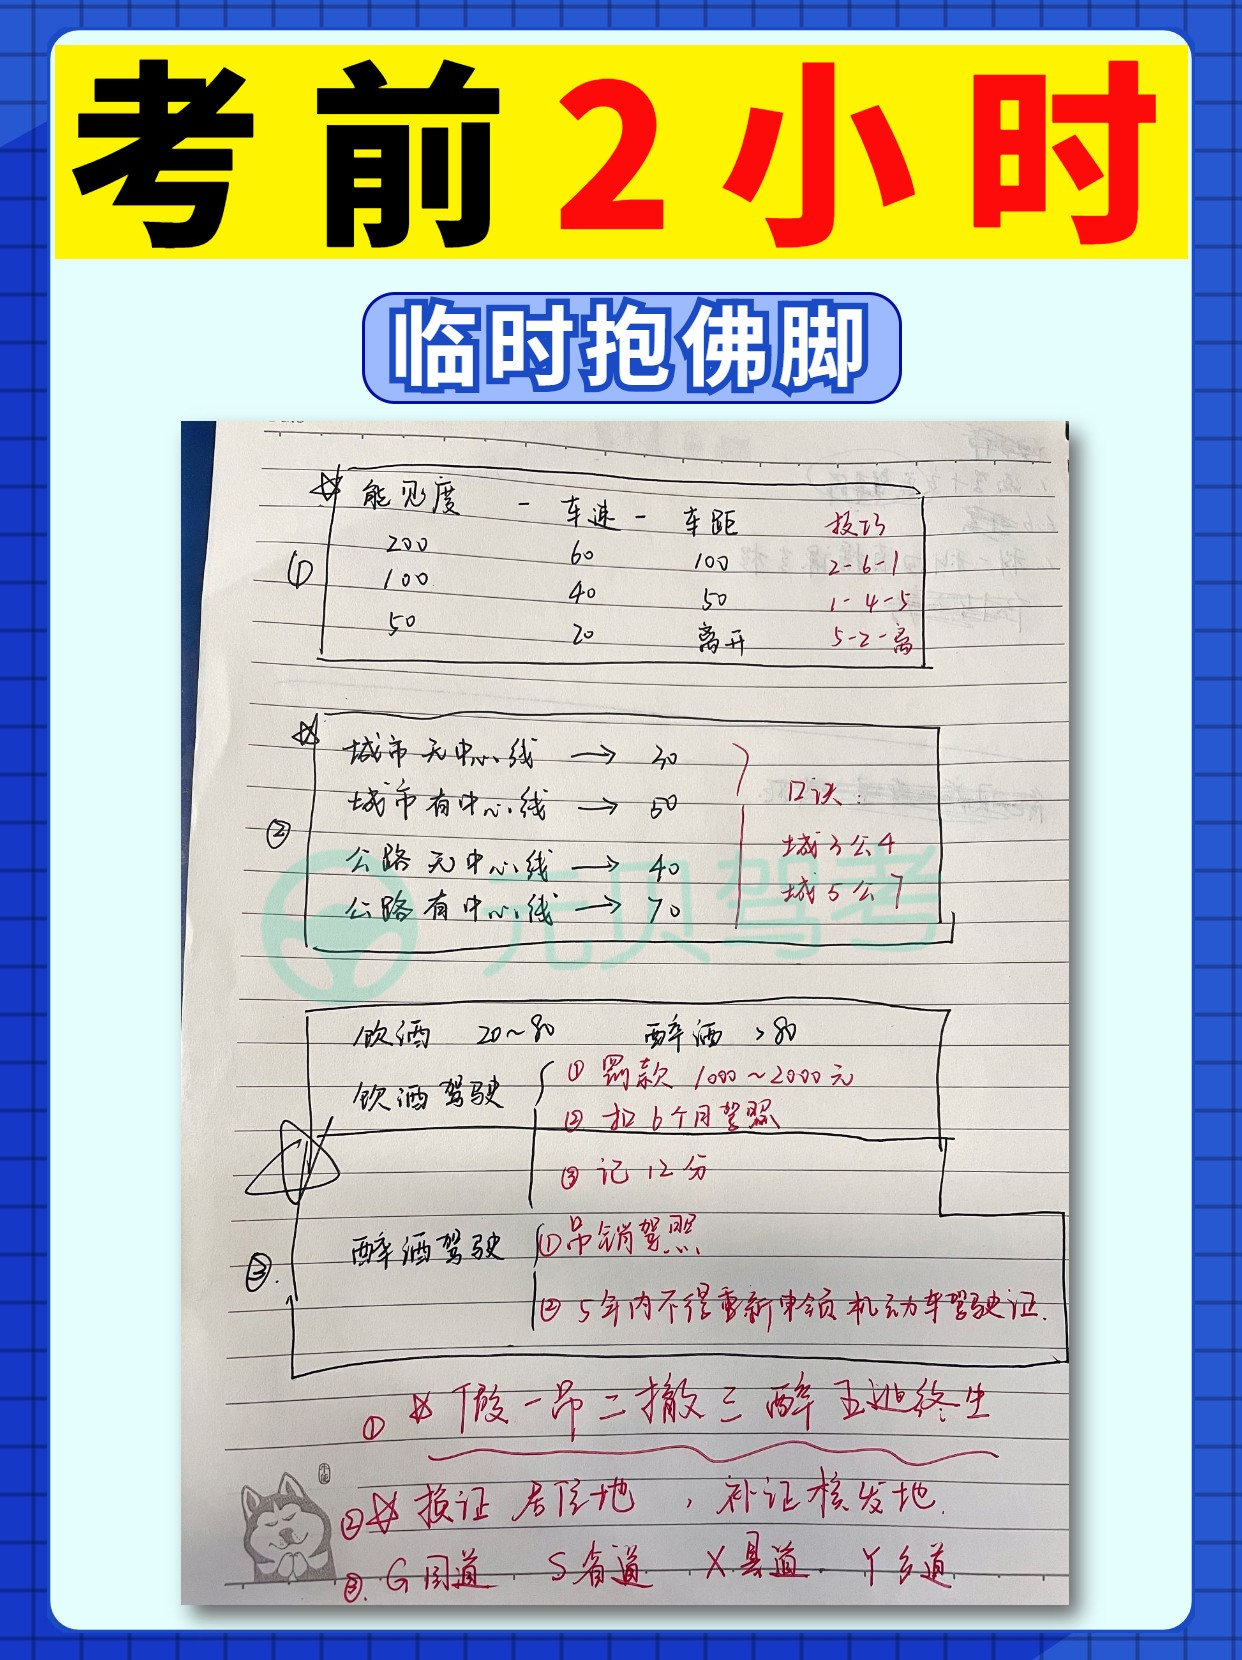 考前2小时
临时抱佛脚
能见度 - 车速 - 车距 技巧
① 200 60 100 2-6-1
100 40 50 1-4-5
50 20 离开 5-2-离
城市无中心线 → 30
城市有中心线 → 50 口诀:
② 公路无中心线 → 40 城3公4
公路有中心线 → 70 城5公7
元贝驾考
饮酒 20~80 醉酒 >80
饮酒驾驶 ① 罚款 1000~2000元
② 扣6个月驾照
③ 记12分
③. 醉酒驾驶 ① 吊销驾照
② 5年内不得重新申领机动车驾驶证.
① 假一吊二撤三醉五逃终生
② 换证居住地, 补证核发地.
③. G国道 S省道 X县道. Y乡道